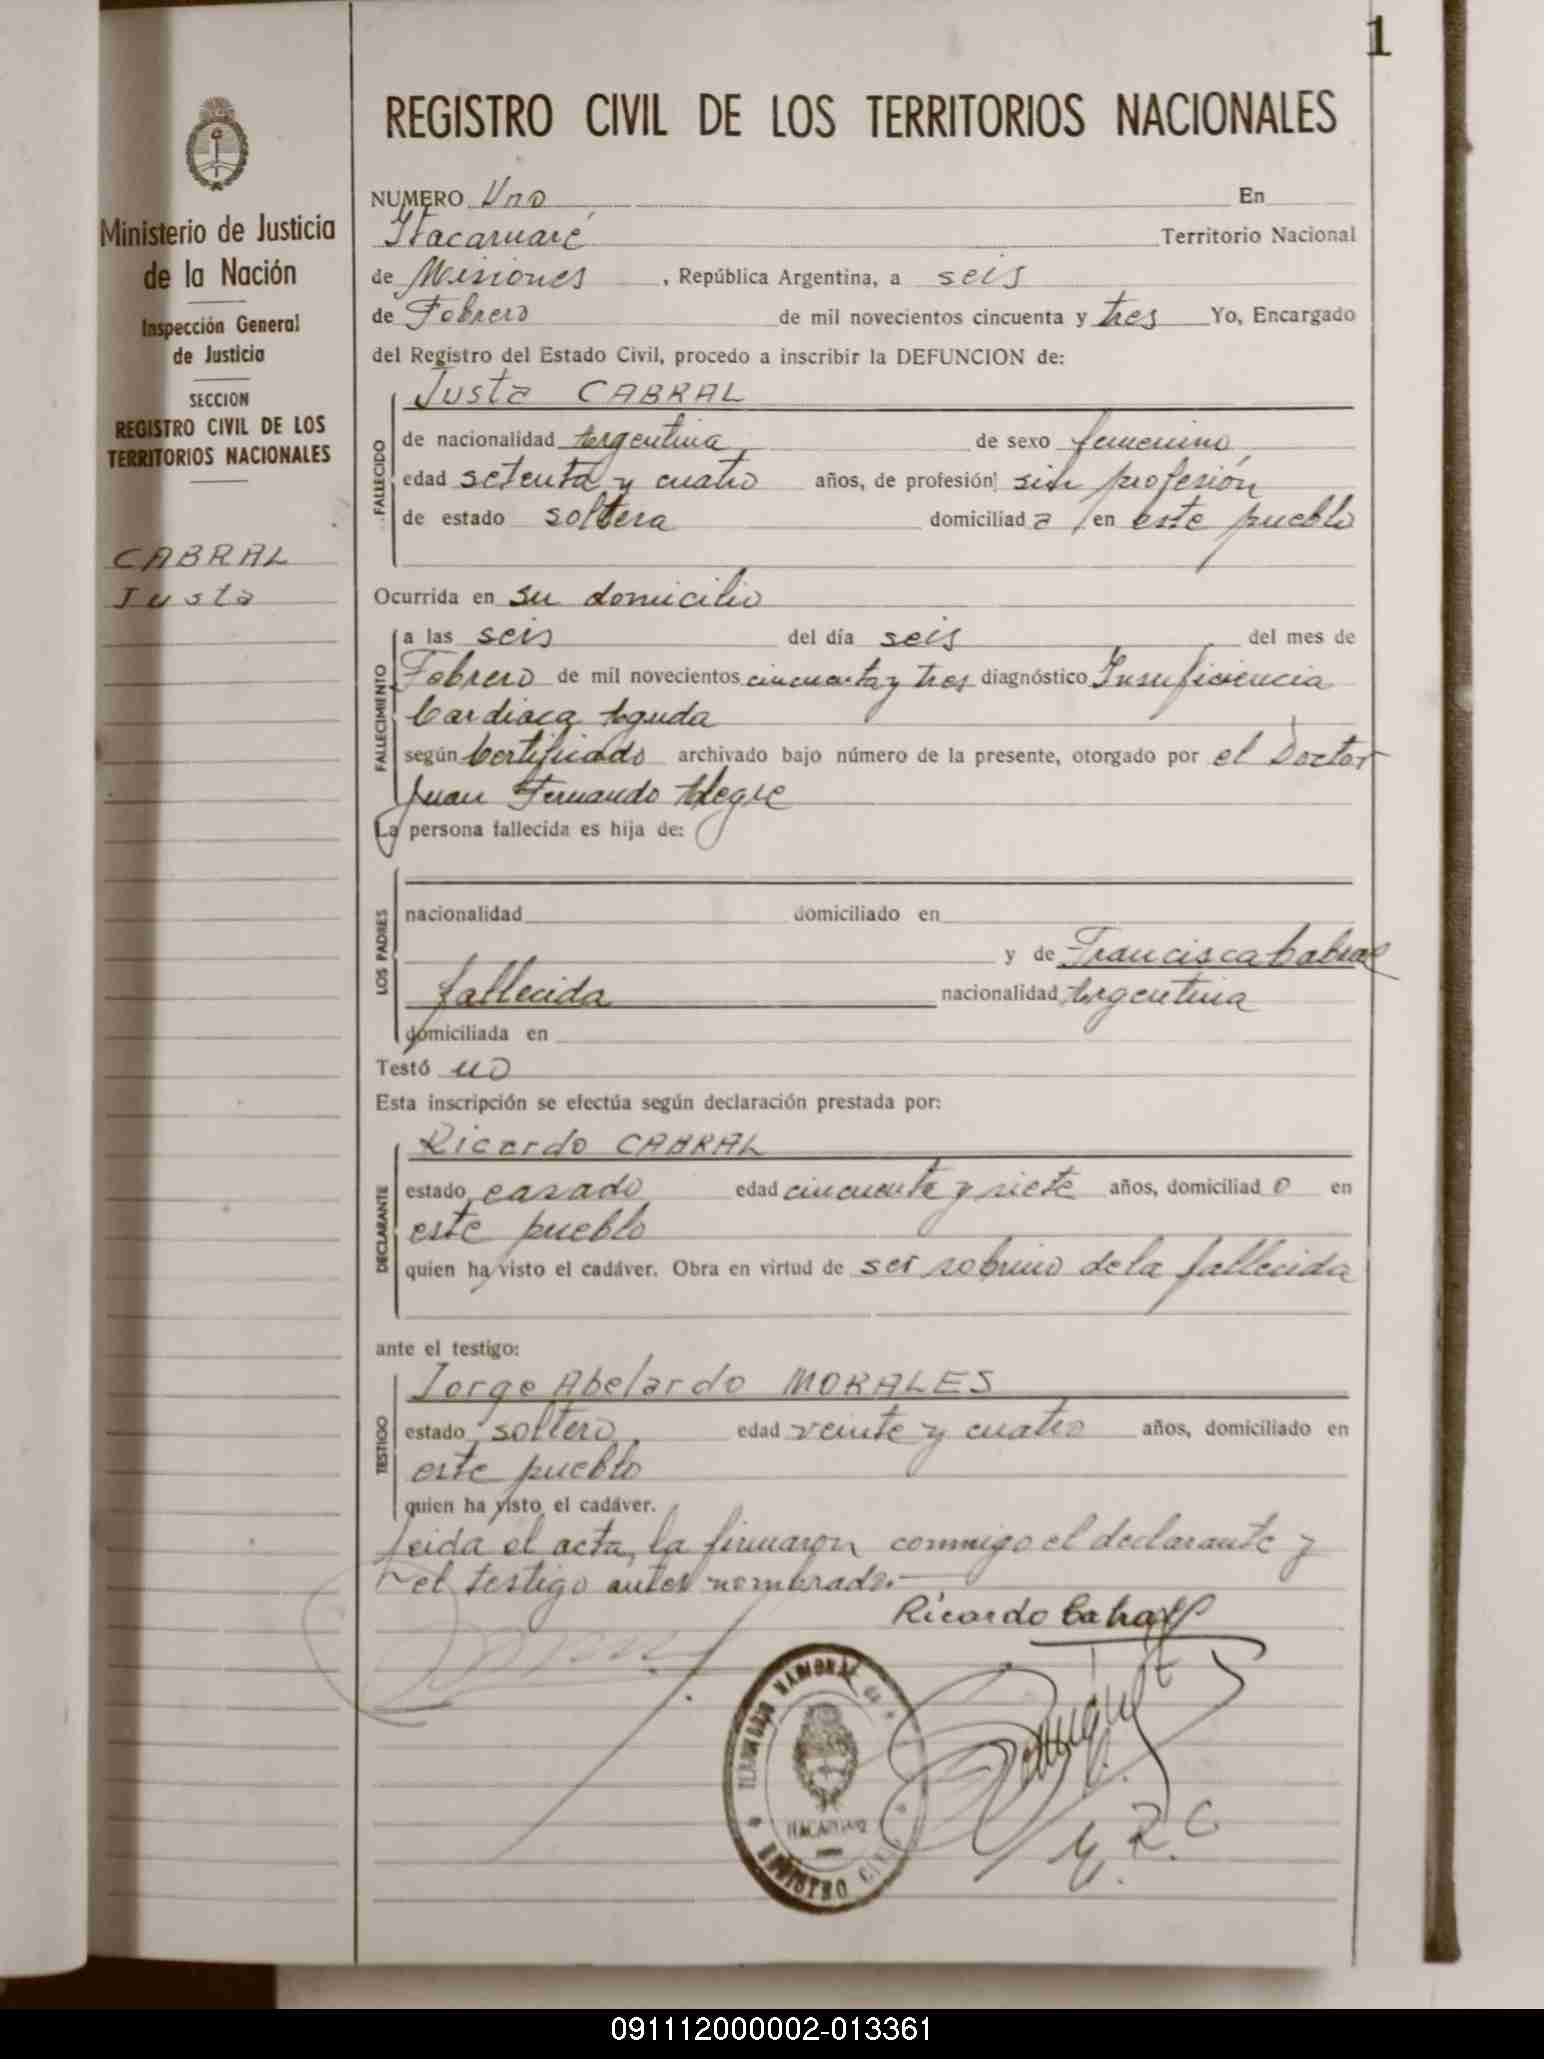 1
Ministerio de Justicia
de la Nación
Inspección General
de Justicia
SECCION
REGISTRO CIVIL DE LOS
TERRITORIOS NACIONALES
CABRAL
Justa
REGISTRO CIVIL DE LOS TERRITORIOS NACIONALES
NUMERO Uno En
Itacaruaré Territorio Nacional
de Misiones, República Argentina, a seis
de Febrero de mil novecientos cincuenta y tres Yo, Encargado
del Registro del Estado Civil, procedo a inscribir la DEFUNCION de:
Justa CABRAL
FALLECIDO
de nacionalidad Argentina de sexo femenino,
edad setenta y cuatro años, de profesión sin profesión
de estado soltera domiciliad a en este pueblo
Ocurrida en su domicilio
FALLECIMIENTO
a las seis del día seis del mes de
Febrero de mil novecientos cincuenta y tres diagnóstico Insuficiencia
Cardiaca Aguda
según Certificado archivado bajo número de la presente, otorgado por el Doctor
Juan Fernando Alegre
La persona fallecida es hija de:
LOS PADRES
nacionalidad domiciliado en
y de Francisca Cabral
fallecida nacionalidad Argentina
domiciliada en
Testó no
Esta inscripción se efectúa según declaración prestada por:
Ricardo CABRAL
DECLARANTE
estado casado edad cincuenta y siete años, domiciliad o en
este pueblo
quien ha visto el cadáver. Obra en virtud de ser sobrino de la fallecida
ante el testigo:
Jorge Abelardo MORALES
TESTIGO
estado soltero, edad veinte y cuatro años, domiciliado en
este pueblo
quien ha visto el cadáver.
Leida el acta, la firmaron conmigo el declarante y
el testigo antes nombrado.
Ricardo Cabral
TERRITORIO NACIONAL de
ITACARUARE
REGISTRO CIVIL
E. R. C
091112000002-013361